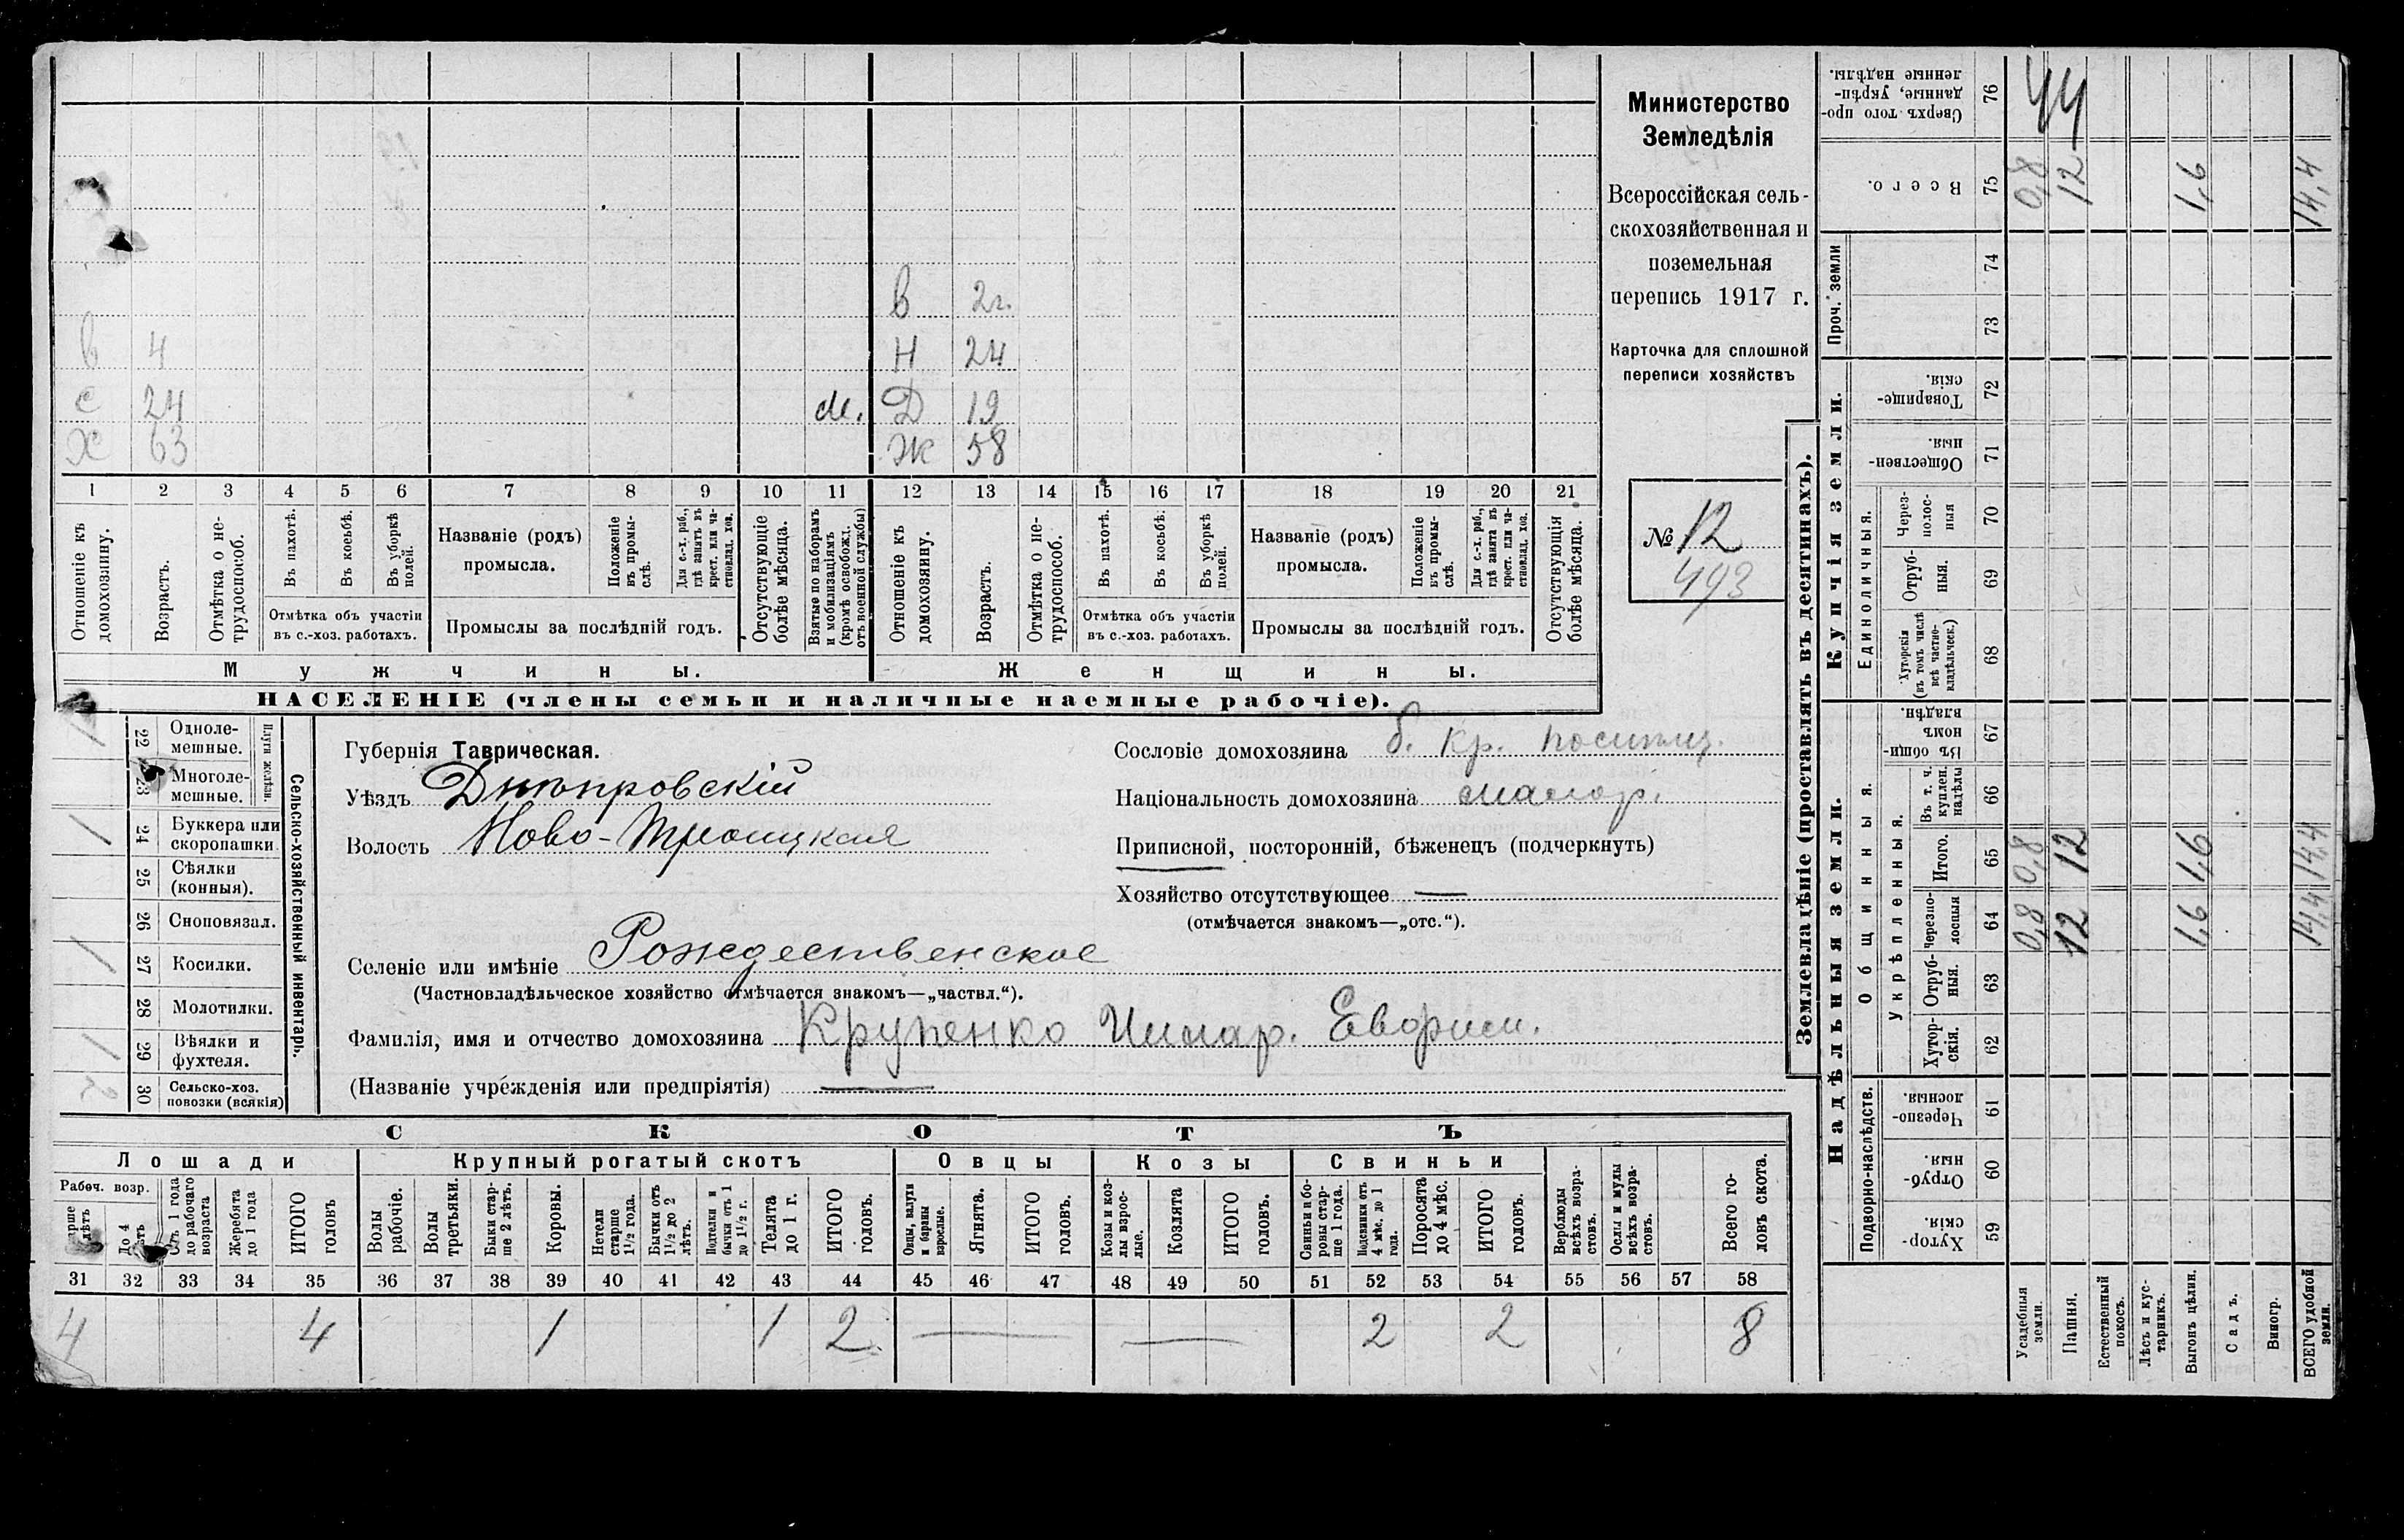 в 2г.
в 4 Н 24
с 24 м. Д 19
Х 63 Ж 58
1 2 3 4 5 6 7 8 9 10 11 12 13 14 15 16 17 18 19 20 21
Отношеніе къ домохозяину.
Возрастъ.
Отмѣтка о не-трудоспособ.
Въ пахотѣ.
Въ косьбѣ.
Въ уборкѣ полей.
Отмѣтка объ участіи
въ с.-хоз. работахъ.
Названіе (родъ)
промысла.
Положеніе въ промы-слѣ.
Для с.-х. раб., гдѣ занятъ въ крест. или ча-стновлад. хоз.
Промыслы за послѣдній годъ.
Отсутствующіе болѣе мѣсяца.
Взятые по наборамъ и мобилизаціямъ (кромѣ освобожд. отъ военной службы)
Отношеніе къ домохозяину.
Возрастъ.
Отмѣтка о не-трудоспособ.
Въ пахотѣ.
Въ косьбѣ.
Въ уборкѣ полей.
Отмѣтка объ участіи
въ с.-хоз. работахъ.
Названіе (родъ)
промысла.
Положеніе въ промы-слѣ.
Для с.-х. раб., гдѣ занята въ крест. или ча-стновлад. хоз.
Промыслы за послѣдній годъ.
Отсутствующія болѣе мѣсяца.
Мужчины. Женщины.
НАСЕЛЕНІЕ (члены семьи и наличные наемные рабочіе).
Министерство
Земледѣлія
Всероссійская сель-
скохозяйственная и
поземельная
перепись 1917 г.
Карточка для сплошной
переписи хозяйствъ
№ 12
493
Сельско-хозяйственный инвентарь.
Плуги желѣзн.
22 Одноле-мешные. 1
23 Многоле-мешные.
24 Буккера или скоропашки 1
25 Сѣялки (конныя).
26 Сноповязал.
27 Косилки. 1
28 Молотилки.
29 Вѣялки и фухтеля. 1
30 Сельско-хоз. повозки (всякія)
Губернія Таврическая.
Уѣздъ Днѣпровскій
Волость Ново-Троицкая
Сословіе домохозяина б. кр.
Національность домохозяина малор.
Приписной, посторонній, бѣженецъ (подчеркнуть)
Хозяйство отсутствующее —
(отмѣчается знакомъ—„отс.“).
Селеніе или имѣніе Рождественское
(Частновладѣльческое хозяйство отмѣчается знакомъ—„частвл.“).
Фамилія, имя и отчество домохозяина Крупенко
(Названіе учрежденія или предпріятія) —
СКОТЪ
Лошади Крупный рогатый скотъ Овцы Козы Свиньи
Рабоч. возр.
До 4
Отъ 1 года до рабочаго возраста
Жеребята до 1 года
ИТОГО головъ
Волы рабочіе.
Волы третьяки.
Быки стар-ше 2 лѣтъ.
Коровы.
Нетели старше 1½ года.
Бычки отъ 1½ до 2 лѣтъ.
Подтелки и бычки отъ 1 до 1½ г.
Телята до 1 г.
ИТОГО головъ.
Овцы, валухи и бараны взрослые.
Ягнята.
ИТОГО головъ.
Козы и коз-лы взрос-лые.
Козлята
ИТОГО головъ.
Свиньи и бо-ровы стар-ше 1 года.
Подсвинки отъ 4 мѣс. до 1 года.
Поросята до 4 мѣс.
ИТОГО головъ.
Верблюды всѣхъ возра-стовъ.
Ослы и мулы всѣхъ возра-стовъ.
Всего го-ловъ скота.
31 32 33 34 35 36 37 38 39 40 41 42 43 44 45 46 47 48 49 50 51 52 53 54 55 56 57 58
4 4 1 1 2 — — 2 2 8
Землевладѣніе (проставлять въ десятинахъ).
Надѣльныя земли. Купчія земли. Проч. земли
Подворно-наслѣдств. Общинныя. Единоличныя.
Укрѣпленныя.
59 Хутор-скія.
60 Отруб-ныя.
61 Черезпо-лосныя.
62 Хутор-скія.
63 Отруб-ныя.
64 Черезпо-лосныя
65 Итого.
66 Въ т. ч. куплен. надѣлы
67 Въ общин-номъ владѣн.
68 Хуторскія (въ томъ числѣ всѣ частно-владѣльческ.)
69 Отруб-ныя.
70 Через-полос-ныя
71 Обществен-ныя.
72 Товарище-скія.
73
74
75 Всего.
76 Сверхъ того про-данные, укрѣп-ленные надѣлы.
Усадебныя земли. 0,8 0,8 0,8
Пашня. 12 12 12 44
Естественный покосъ.
Лѣсъ и кус-тарникъ.
Выгонъ цѣлин. 1,6 1,6 1,6
Садъ.
Виногр.
ВСЕГО удобной земли. 14,4 14,4 14,4